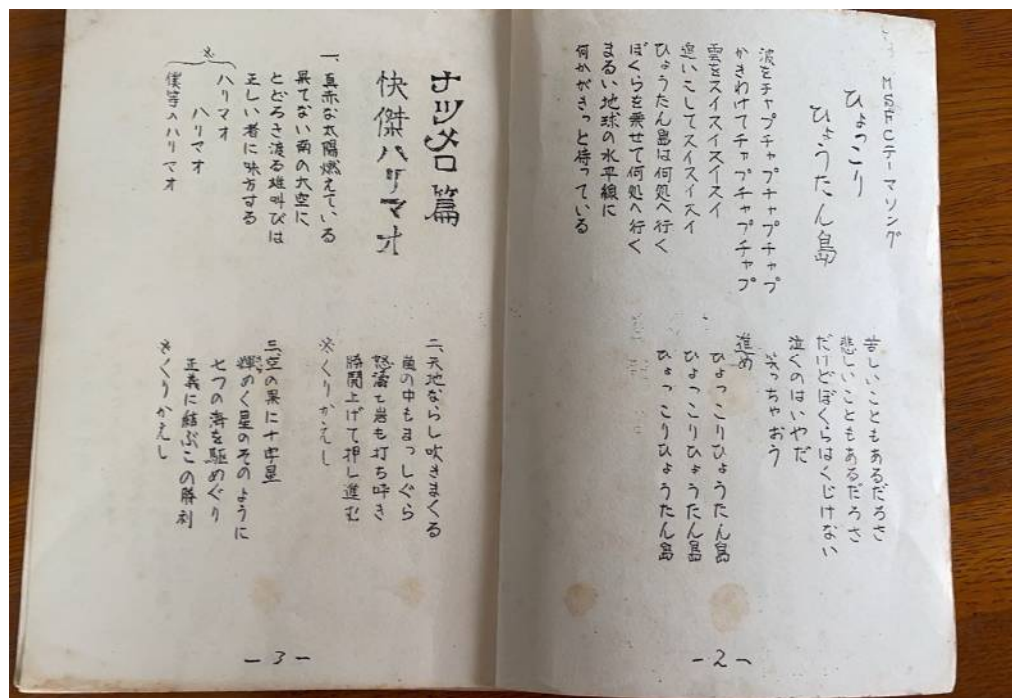 MSFCテーマソング
ひょっこり
ひょうたん島
波をチャプチャプチャプチャプ
かきわけてチャプチャプチャプ
雲をスイスイスイスイ
追いこしてスイスイスイ
ひょうたん島は何処へ行く
ぼくらを乗せて何処へ行く
まるい地球の水平線に
何かがきっと待っている
苦しいこともあるだろさ
悲しいこともあるだろさ
だけどぼくらはくじけない
泣くのはいやだ
笑っちゃおう
進め
ひょっこりひょうたん島
ひょっこりひょうたん島
ひょっこりひょうたん島
-2-
ナツメロ篇
快傑ハリマオ
一、真赤な太陽燃えている
果てない南の大空に
とどろき渡る雄叫びは
正しい者に味方する
※
ハリマオ
ハリマオ
僕等のハリマオ
二、天地ならし吹きまくる
嵐の中もまっしぐら
怒濤で岩も打ち砕き
勝鬨上げて押し進む
※くりかえし
三、空の果に十字星
輝めく星のそのように
七つの海を駆めぐり
正義に結ぶこの勝利
※くりかえし
-3-